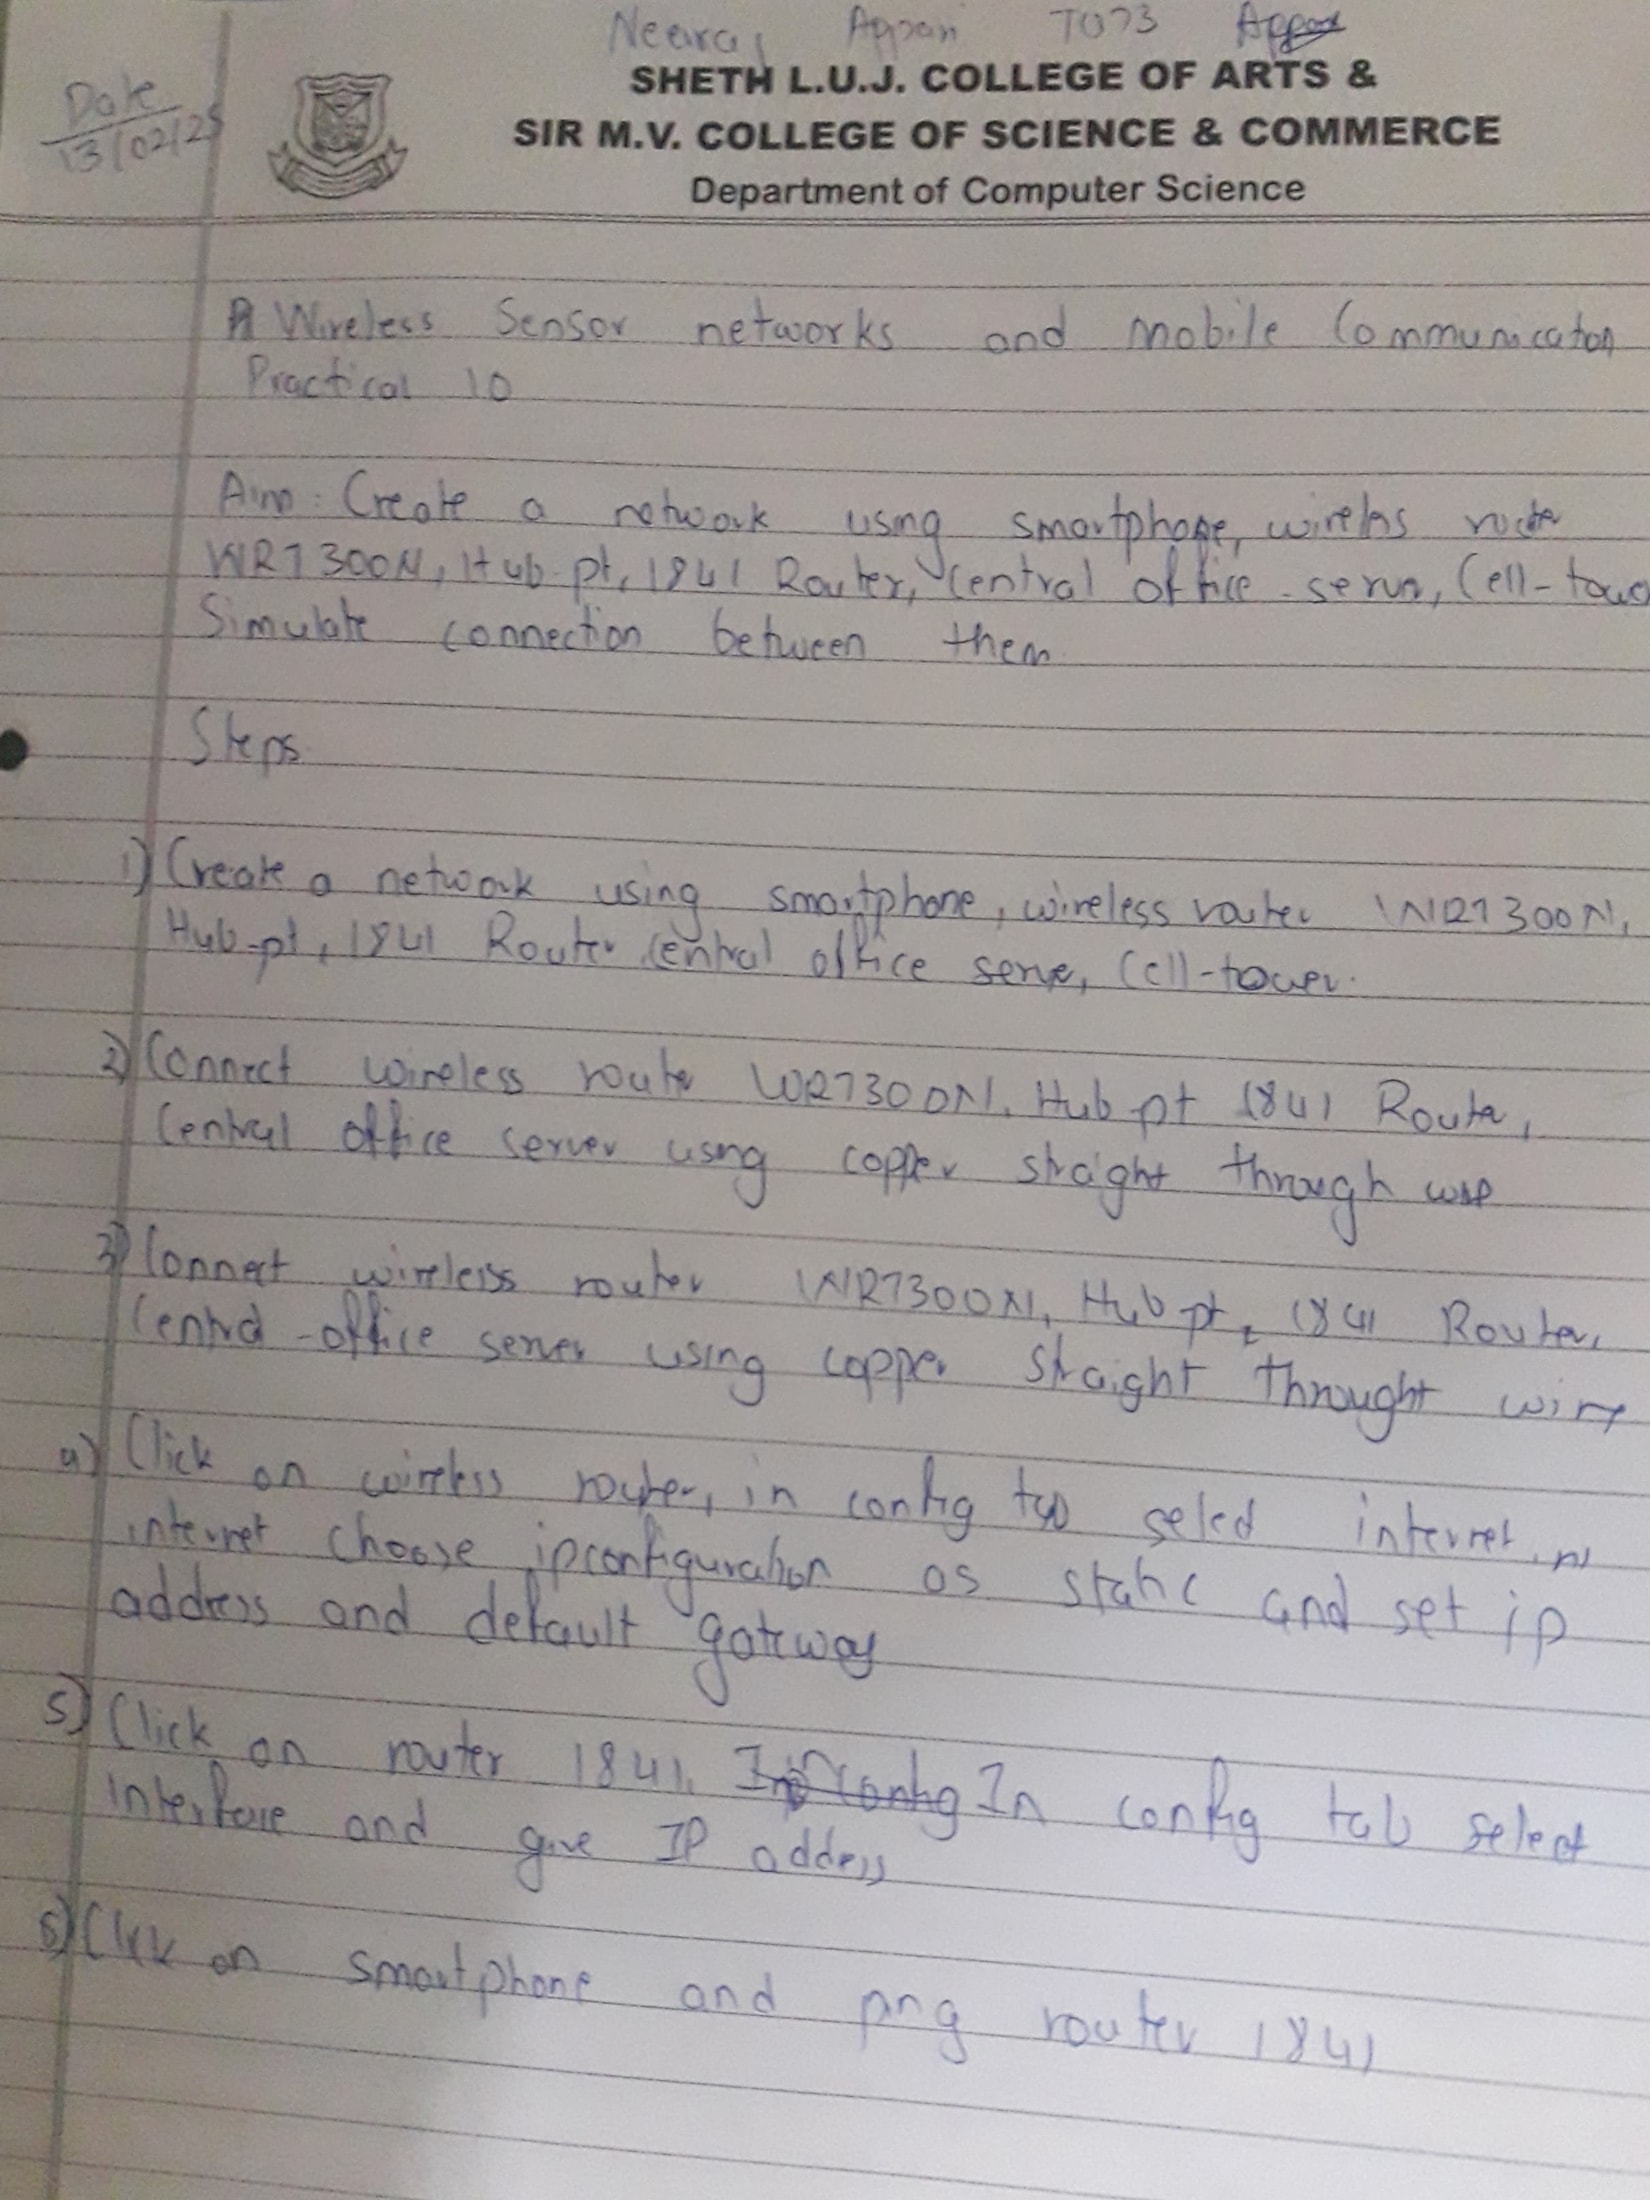 Neeraj Appari T073
SHETH L.U.J. COLLEGE OF ARTS &
Date
13/02/25
SIR M.V. COLLEGE OF SCIENCE & COMMERCE
Department of Computer Science
Wireless Sensor networks and mobile Communication
Practical 10
Aim: Create a network using smartphone, wireless router
WRT300N, Hub pt, 1841 Router, Central office server, Cell-tower
Simulate connection between them
Steps
1) Create a network using smartphone, wireless router WRT300N,
Hub-pt, 1841 Router Central office serve, Cell-tower.
2) Connect wireless router WRT300N, Hub pt 1841 Router,
Central office server using copper straight through
3) Connect wireless router WRT300N, Hub pt, 1841 Router,
Central-office server using copper straight throught wire
4) Click on wireless router, in config tab select internet, in
internet choose ipconfiguration as static and set ip
address and default gateway
5) Click on router 1841. In config In config tab select
Interface and give IP address
6) Click on smartphone and ping router 1841